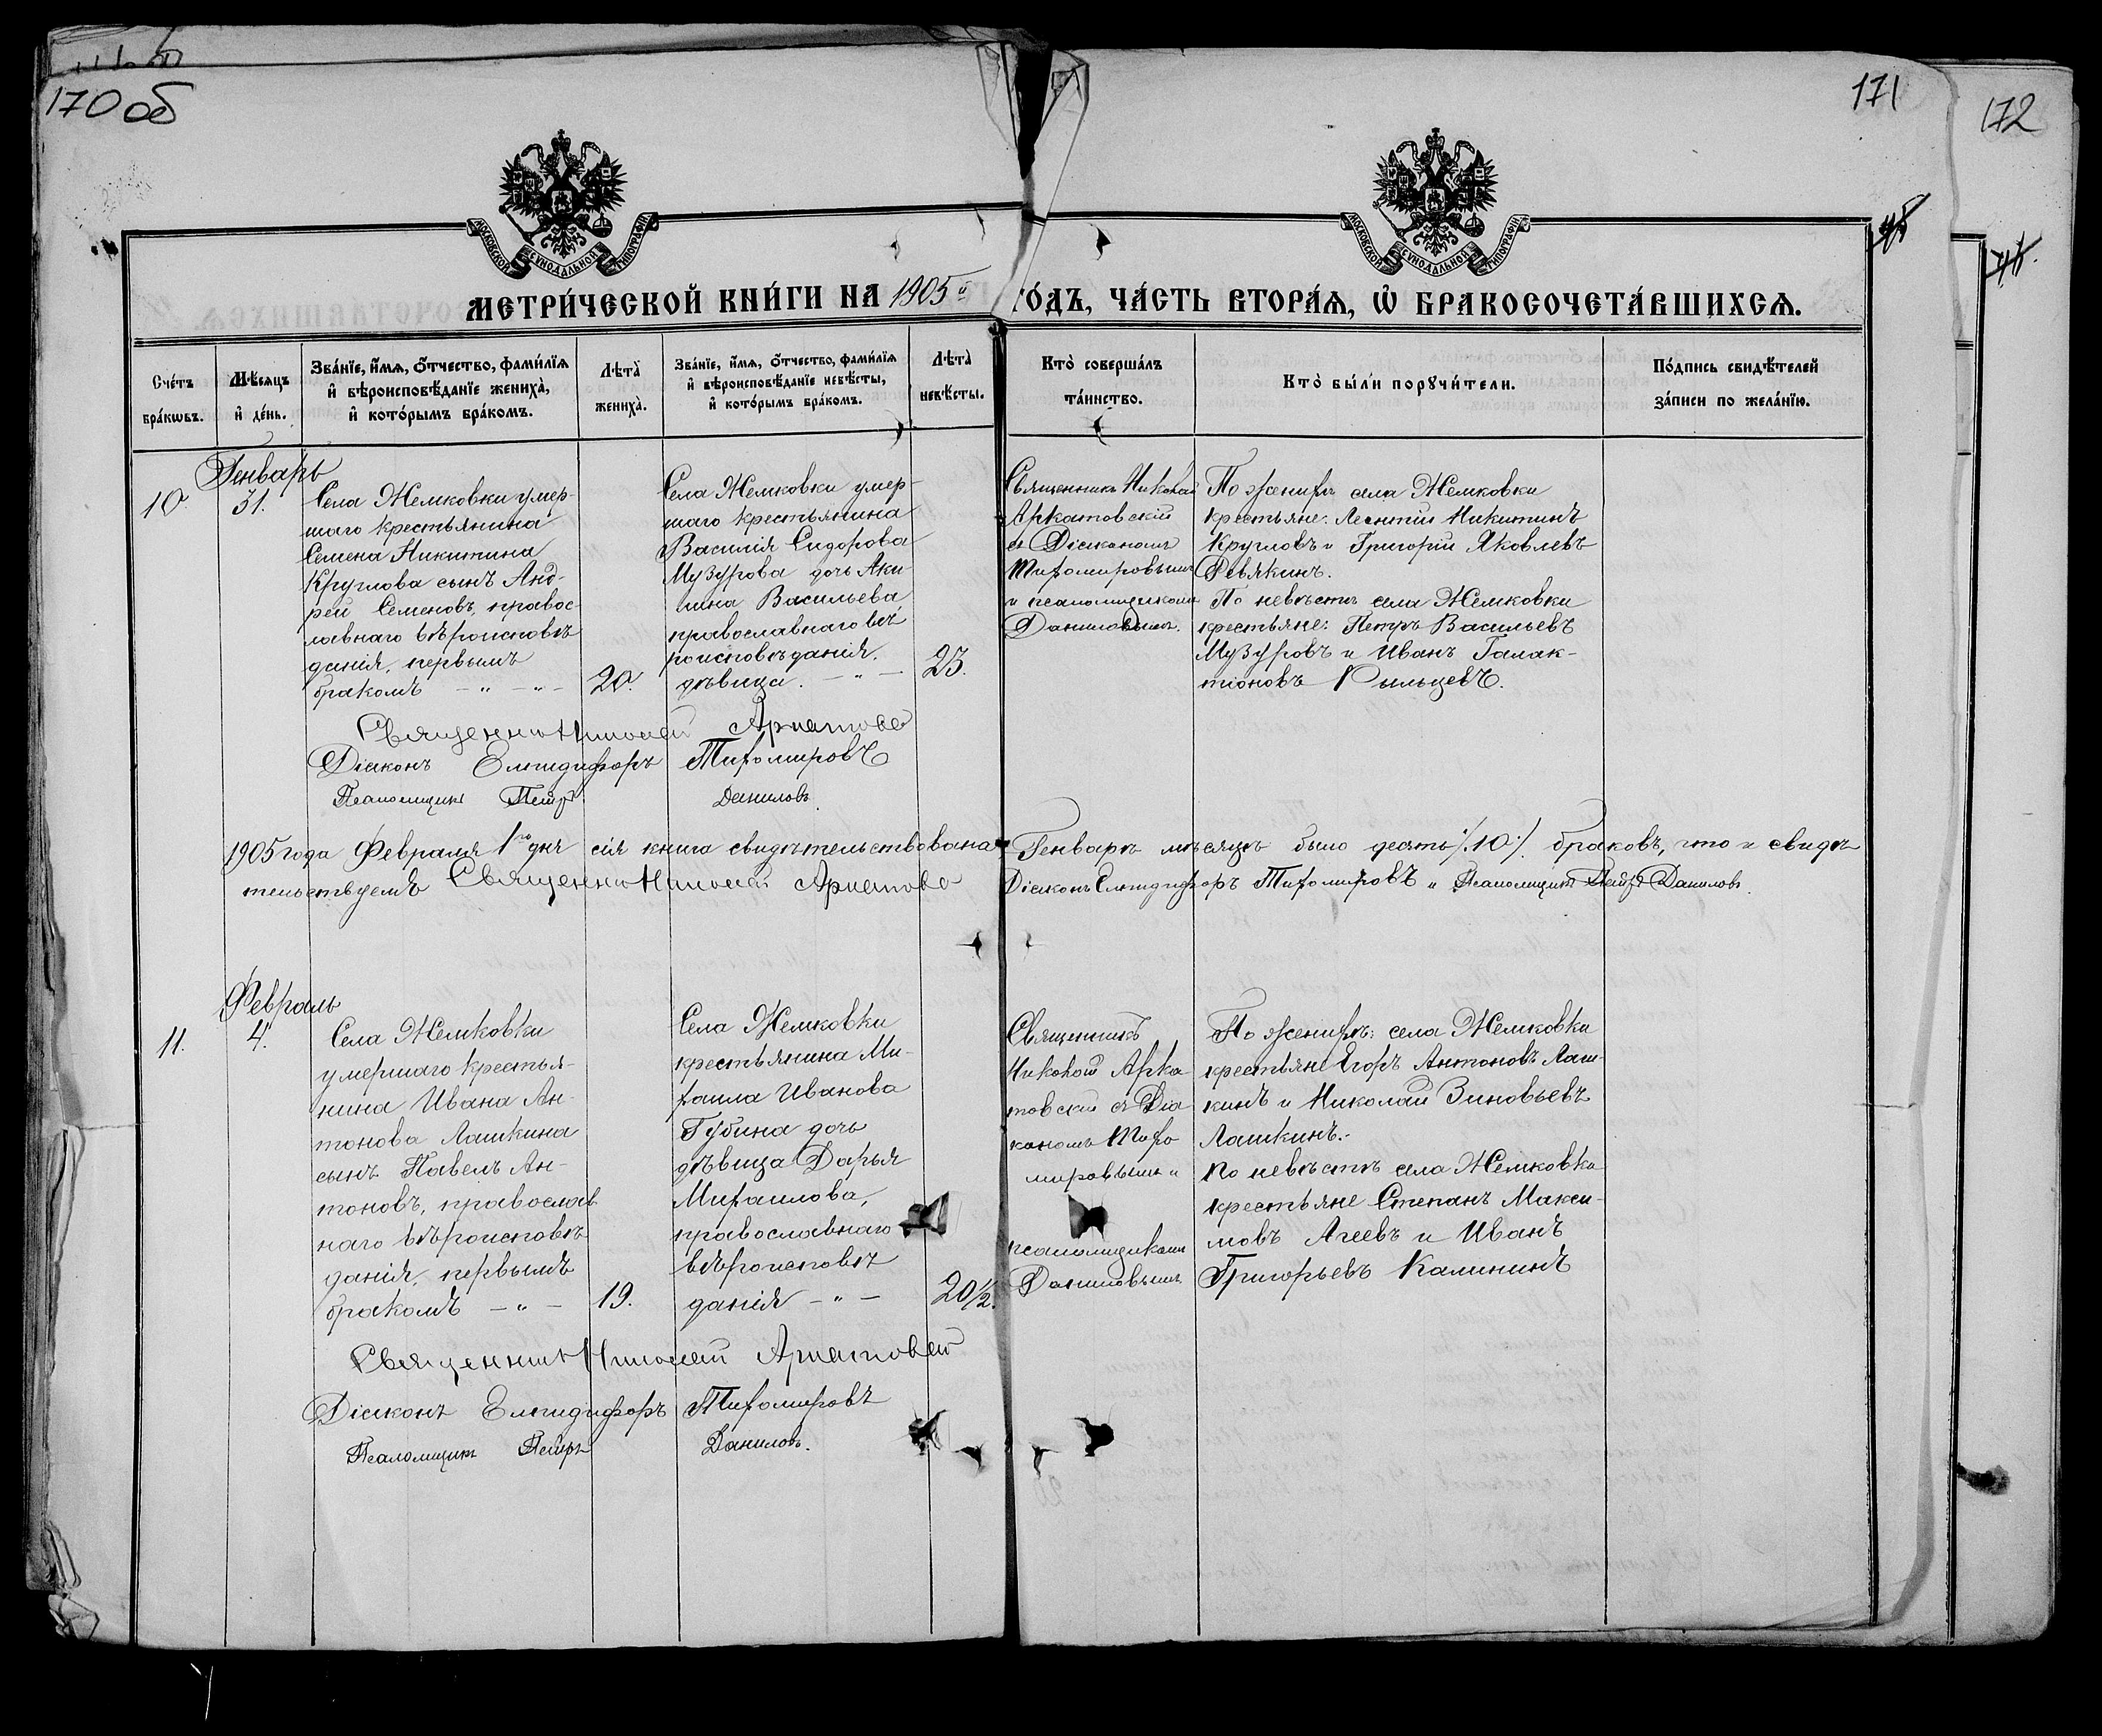 170 об
171
172
МОСКОВСКОЙ СѴНОДАЛЬНОЙ ТИПОГРАФІИ
МОСКОВСКОЙ СѴНОДАЛЬНОЙ ТИПОГРАФІИ
МЕТРИ́ЧЕСКОЙ КНИ́ГИ НА 1905й ГО́ДЪ, ЧА́СТЬ ВТОРА́Ѧ, Ѽ БРАКОСОЧЕТА́ВШИХСѦ.
Сче́тъ
бра́кѡвъ.
Мѣ́сѧцъ
и҆ де́нь.
Зва́нїе, и҆́мѧ, ѻ҆́тчество, фами́лїѧ
и҆ вѣроисповѣ́данїе жениха̀,
и҆ кото́рымъ бра́комъ.
Лѣта̀
жениха̀.
Зва́нїе, и҆́мѧ, ѻ҆́тчество, фами́лїѧ
и҆ вѣроисповѣ́данїе невѣ́сты,
и҆ кото́рымъ бра́комъ.
Лѣта̀
невѣ́сты.
Кто̀ соверша́лъ
та́инство.
Кто̀ бы́ли порꙋчи́тели.
По́дпись свидѣ́телей
за́писи по жела́нїю.
Генварь
10.
31.
Села Жемковки умер-
шаго крестьянина
Семена Никитина
Круглова сынъ Анд-
рей Семеновъ, правос-
лавнаго вѣроисповѣ
данія, первымъ
бракомъ — „ — „ —
20.
Села Жемковки умер-
шаго крестьянина
Василія Сидорова
Музурова дочь Аки-
лина Васильева
православнаго вѣ
роисповѣданія.
дѣвица. — „ —
23.
Священникъ Николай
Аркатовскій
съ Діакономъ
Тихомировымъ
и псаломщикомъ
Даниловымъ.
По женихѣ села Жемковки
крестьяне: Леонтій Никитинъ
Кругловъ и Григорій Яковлевъ
Ревякинъ.
По невѣстѣ села Жемковки
крестьяне: Петръ Васильевъ
Музуровъ и Иванъ Галак-
тіоновъ Рыльцевъ.
Священникъ Николай Аркатовскій
Діаконъ Елпидифоръ Тихомировъ
Псаломщикъ Петръ Даниловъ.
1905 года Февраля 1го дня сія книга свидѣтельствована Генварѣ мѣсяцѣ было десять /.10./ браковъ, что и свидѣ
тельствуемъ Священникъ Николай Аркатовск Діаконъ Елпидифоръ Тихомировъ и Псаломщикъ Петръ Даниловъ.
Февраль
11.
4.
Села Жемковки
умершаго крестья-
нина Ивана Ан-
тонова Лашкина
сынъ Павелъ Ан-
тоновъ, православ
наго вѣроисповѣ
данія, первымъ
бракомъ — „ —
19.
Села Жемковки
крестьянина Ми-
хаила Иванова
Губина дочь
дѣвица Дарья
Михаилова,
православнаго
вѣроисповѣ
данія — „ —
20½.
Священникъ
Николай Арка
товскій съ Діа
кономъ Тихо
мировымъ и
псаломщикомъ
Даниловымъ
По женихѣ: села Жемковки
крестьяне Егоръ Антоновъ Лаш-
кинъ и Николай Зиновьевъ
Лашкинъ.
По невѣстѣ села Жемковки
крестьяне Степанъ Макси-
мовъ Агеевъ и Иванъ
Григорьевъ Калининъ
Священникъ Николай Аркатовскій
Діаконъ Елпидифоръ Тихомировъ
Псаломщикъ Петръ Даниловъ.